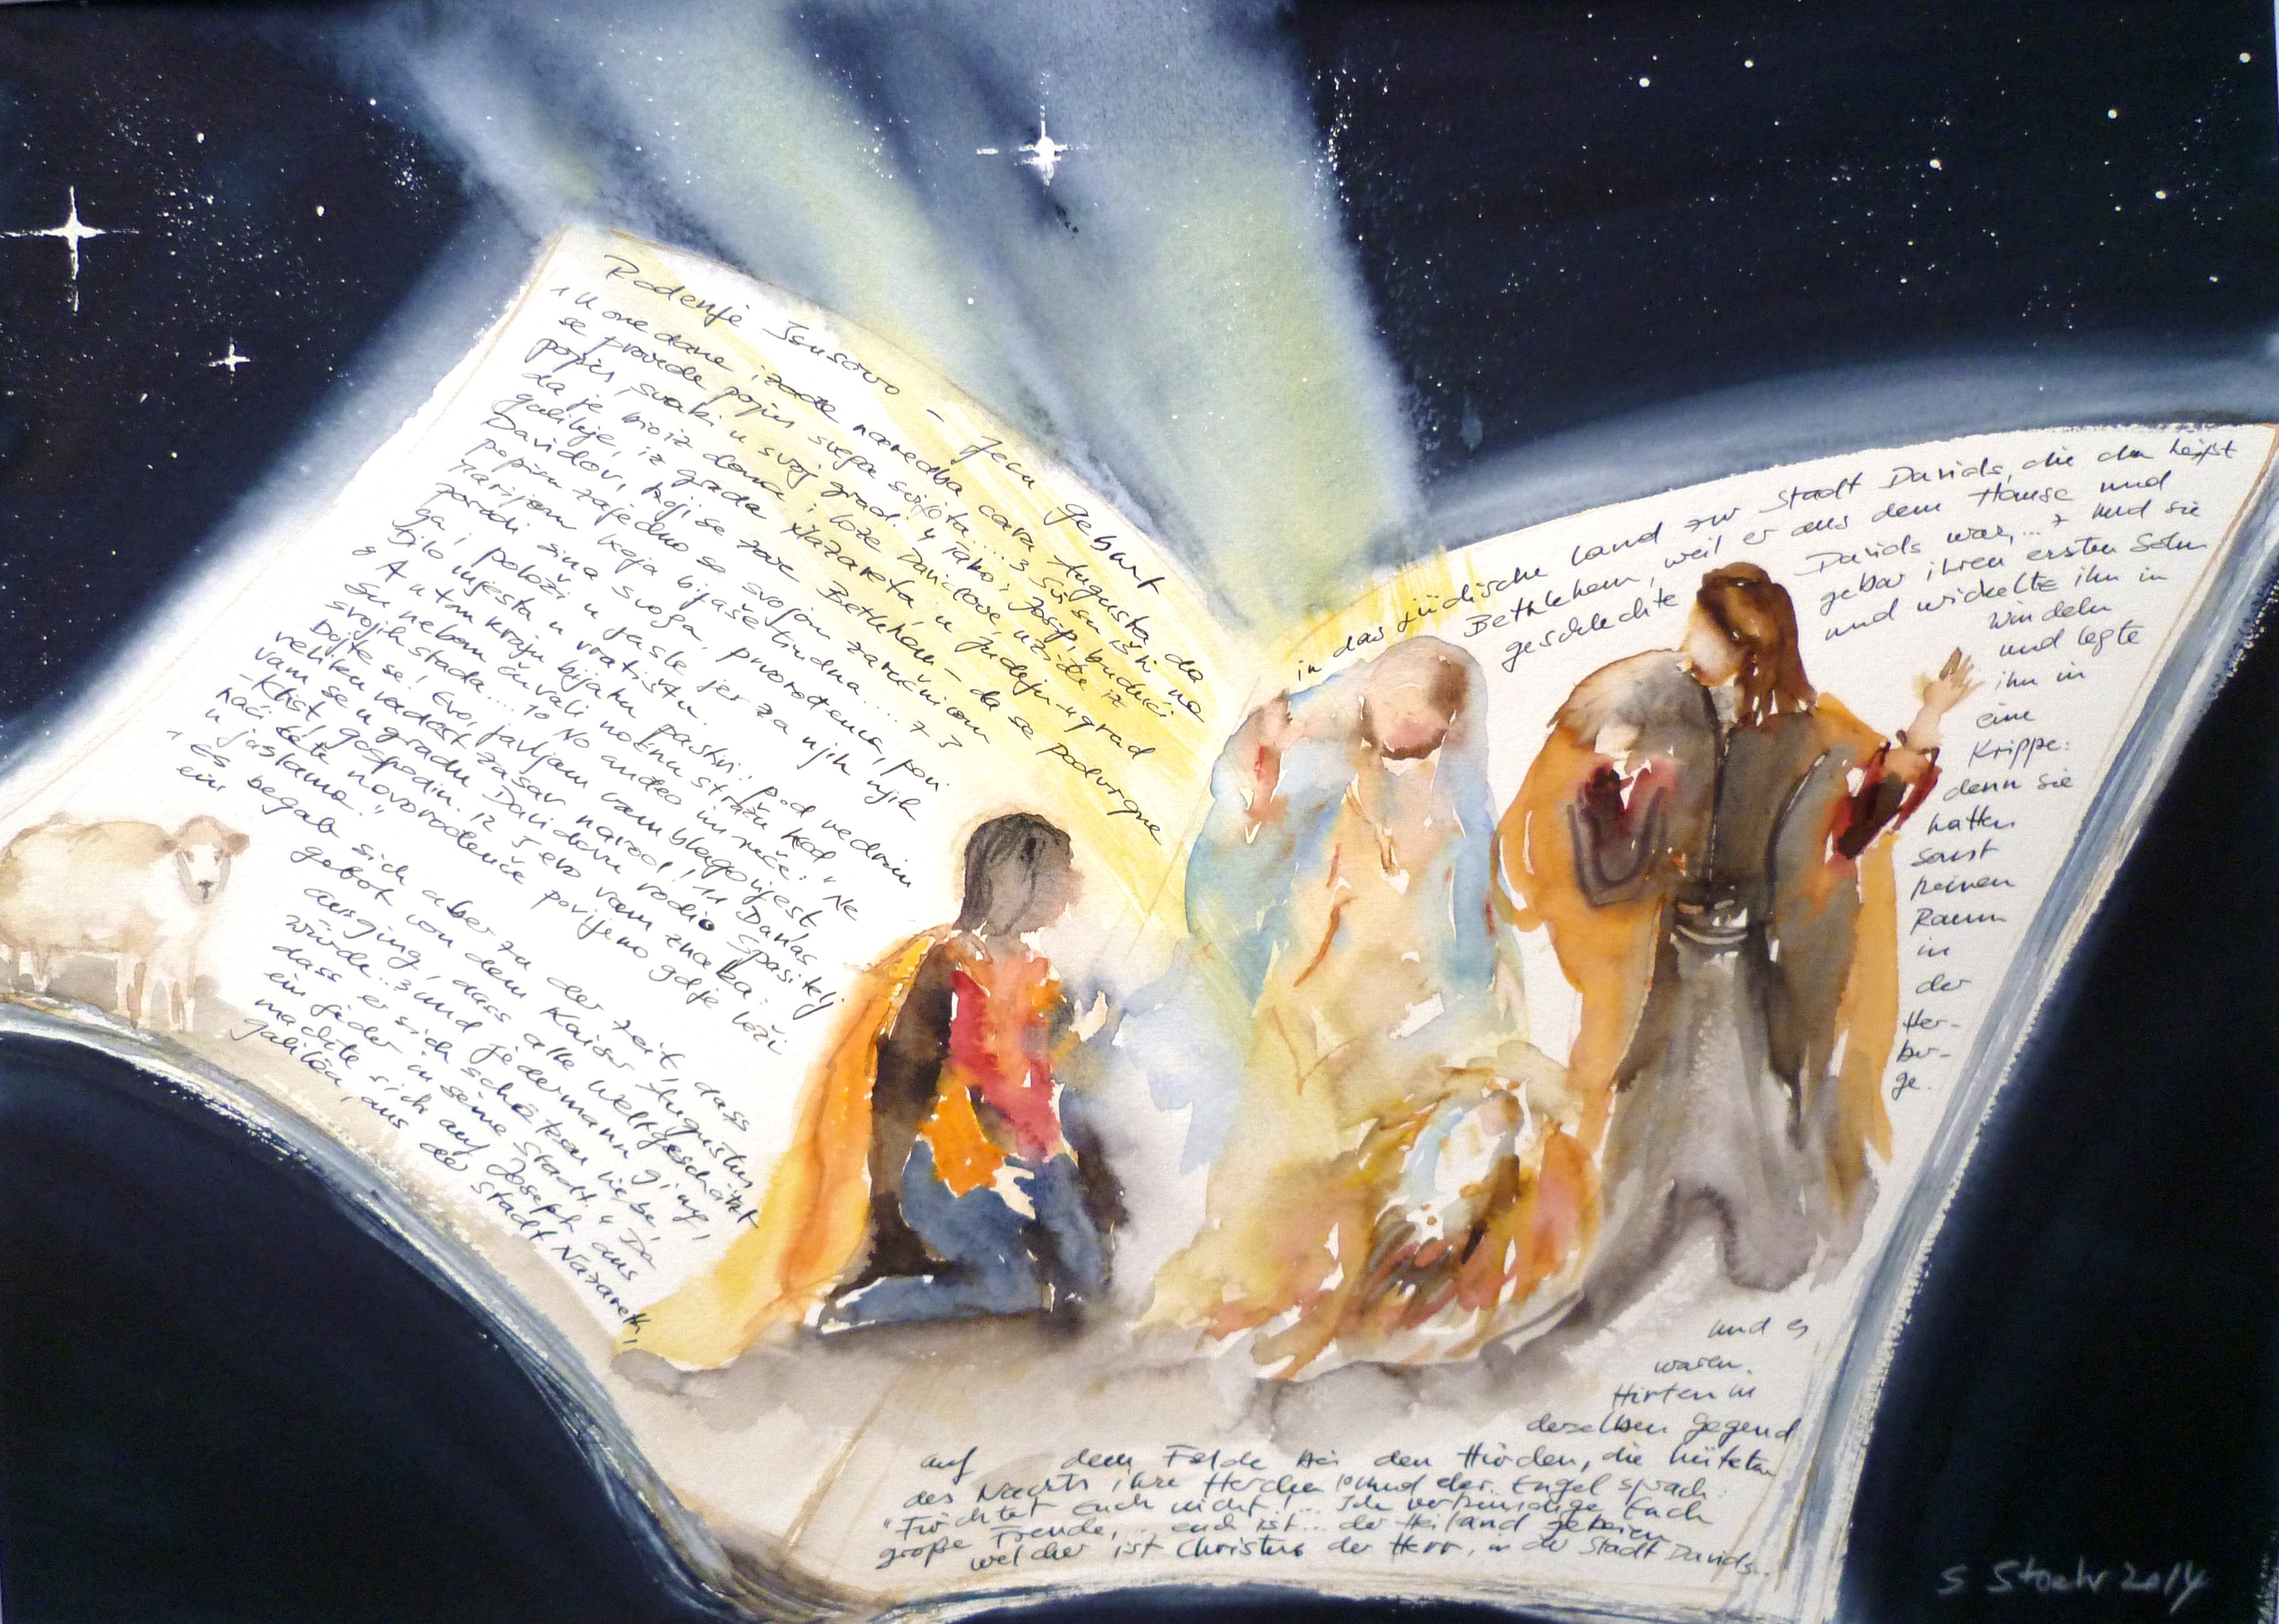 Rođenje Isusovo – Jesu Geburt
1 U one dane izađe naredba cara Augusta da
se provede popis svega svijeta....3 Svi su išli na
popis, svaki u svoj grad. 4 Tako i Josip, budući
da je bio iz doma i loze Davidove, uziđe iz
galileje, iz grada Nazareta, u Judeju – u grad
Davidov, koji se zove Betlehem – da se podvrgne
popisu zajedno sa svojom zaručnicom
Marijom koja bijaše trudna.... 7 I
porodi sina svoga, prvorođenca, povi
ga, i položi u jasle jer za njih nije
bilo mjesta u svratištu.
8 A u tom kraju bijahu pastiri: pod vedrim
su nebom čuvali noćnu stražu kod
svojih stada....10 No anđeo im reče: "Ne
bojte se! Evo, javljam vam blagovijest,
veliku radost za sav narod! 11 Danas
vam se u gradu Davidovu rodio Spasitelj
– Krist, Gospodin. 12 I evo vam znaka:
naći ćete novorođenče povijeno gdje leži
u jaslama."
1 Es begab sich aber zu der Zeit, dass
ein gebot von dem Kaiser Augustus
ausging, dass alle Welt geschätzt
würde...3 und jedermann ging,
dass er sich schätzen ließe,
ein jeder in seine Stadt. 4 Da
machte sich auf Joseph aus
Galiläa, aus der Stadt Nazareth,
in das jüdische Land zur Stadt Davids, die da heißt
Bethlehem, weil er aus dem Hause und
geschlechte Davids war,... 7 und sie
gebar ihren ersten Sohn
und wickelte ihn in
Windeln
und legte
ihn in
eine
Krippe:
denn sie
hatten
sonst
keinen
Raum
in
der
Her-
ber-
ge.
und es
waren
Hirten in
derselben gegend
auf dem Felde bei den Hürden, die hüteten
des Nachts ihre Herden 10 und der Engel sprach:
"Fürchtet Euch nicht!... Ich verkündige Euch
große Freude,... euch ist... der Heiland geboren
welcher ist Christus der Herr, in der Stadt Davids...
S Stoehr 2014